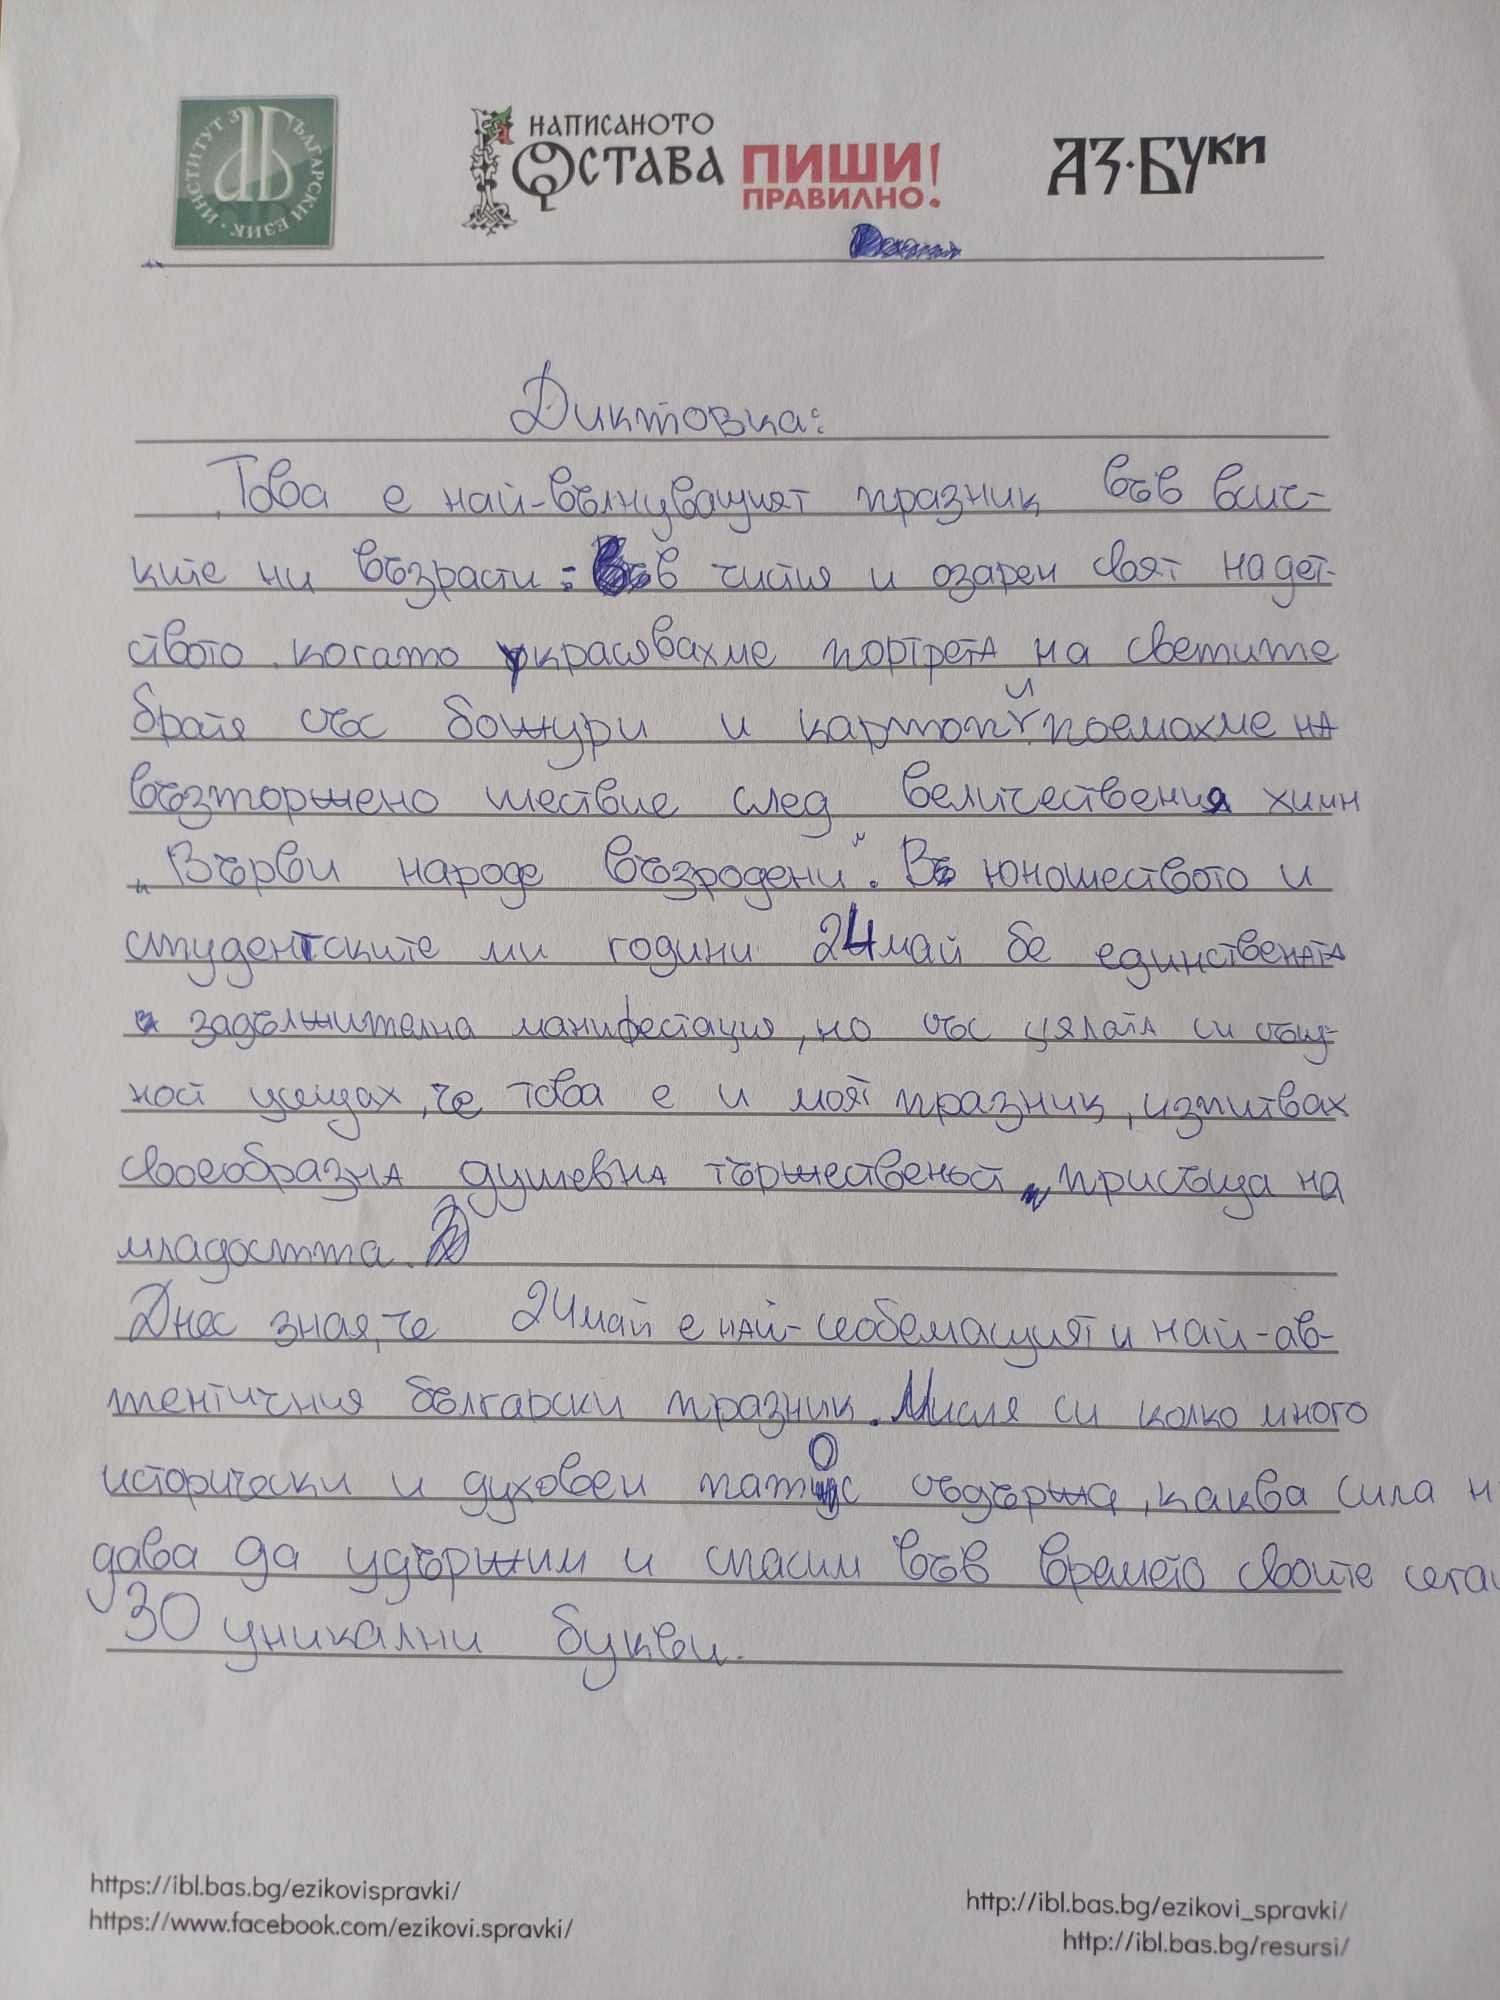 ИНСТИТУТ ЗА БЪЛГАРСКИ ЕЗИК
НАПИСАНОТО
ОСТАВА
ПИШИ
ПРАВИЛНО!
АЗ·БУКИ
Диктовка:
Това е най-вълнуващият празник във всич-
ките ни възрасти: в чистия и озарен свят на дет-
ството, когато украсявахме портрета на светите
братя със божури и картопи и поемахме на
възторжено шествие след величествения химн
„Върви народе възродени". В юношеството и
студентските ми години 24 май бе единствената
задължителна манифестация, но със цялата си същ-
ност усещах, че това е и моят празник, изпитвах
своеобразна душевна тържественост, присъща на
младостта.
Днес зная, че 24 май е най-всеобемащият и най-ав-
тентичния български празник. Мисля си колко много
исторически и духовен патос съдържа, каква сила н
дава да удържим и спасим във времето своите сега
30 уникални букви.
https://ibl.bas.bg/ezikovispravki/
https://www.facebook.com/ezikovi.spravki/
http://ibl.bas.bg/ezikovi_spravki/
http://ibl.bas.bg/resursi/